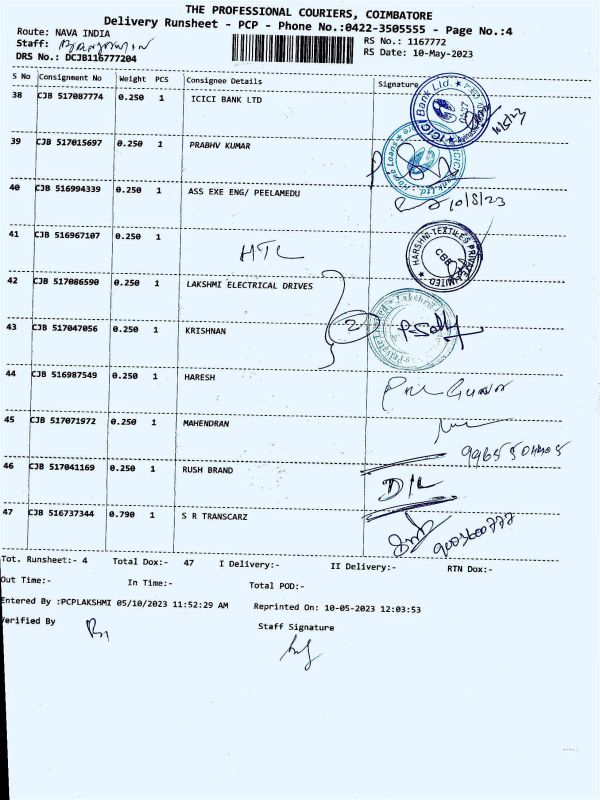 THE PROFESSIONAL COURIERS, COIMBATORE
Delivery Runsheet - PCP - Phone No.:0422-3505555 - Page No.:4
Route: NAVA INDIA
RS No.: 1167772
Staff:
RS Date: 10-May-2023
DRS No.: DCJB116777204
S No Consignment No Weight PCS Consignee Details Signature
38 CJB 517087774 0.250 1 ICICI BANK LTD
ICICI Bank Ltd.
10/5/23
39 CJB 517015697 0.250 1 PRABHV KUMAR
40 CJB 516994339 0.250 1 ASS EXE ENG/ PEELAMEDU
10/5/23
41 CJB 516967107 0.250 1
HTL
HARSHNI-TEXTILES PRIVATE LIMITED
CBE
42 CJB 517086590 0.250 1 LAKSHMI ELECTRICAL DRIVES
2
Lakshmi
Private Limited
43 CJB 517047056 0.250 1 KRISHNAN
44 CJB 516987549 0.250 1 HARESH
45 CJB 517071972 0.250 1 MAHENDRAN
46 CJB 517041169 0.250 1 RUSH BRAND
D/L
47 CJB 516737344 0.790 1 S R TRANSCARZ
9003600777
Tot. Runsheet:- 4 Total Dox:- 47 I Delivery:- II Delivery:- RTN Dox:-
Out Time:- In Time:- Total POD:-
Entered By :PCPLAKSHMI 05/10/2023 11:52:29 AM Reprinted On: 10-05-2023 12:03:53
Verified By
Staff Signature